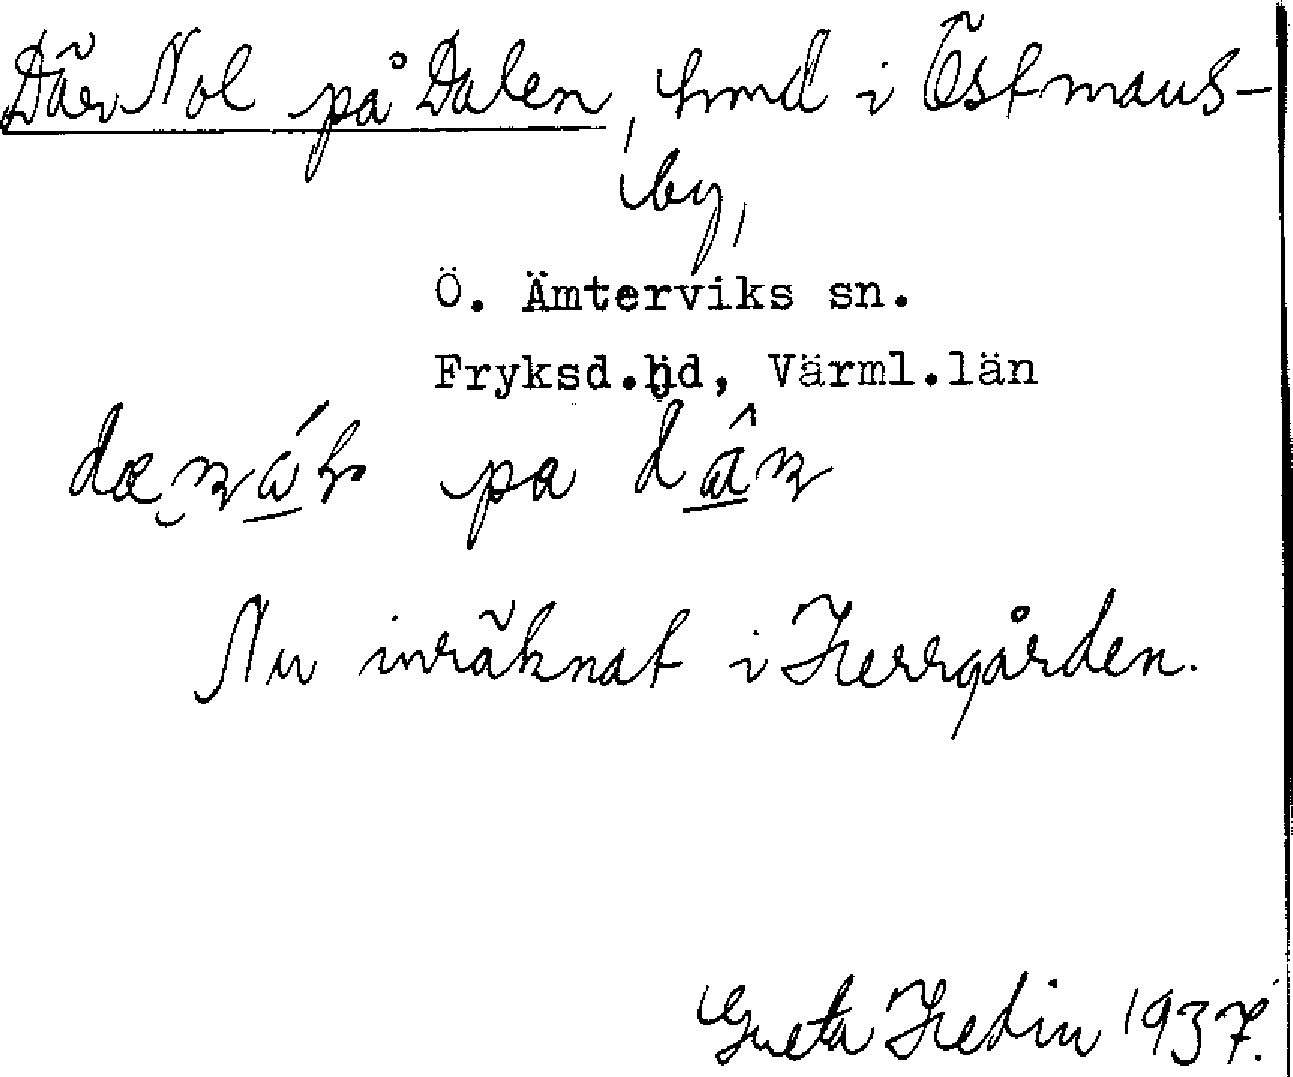 Där Nol på Dalen, hmd i Östmans-
by,
Ö. Ämterviks sn.
Fryksd.hd, Värml.län
pa
Nu inräknat i Herrgården.
Greta Hedin 1937.